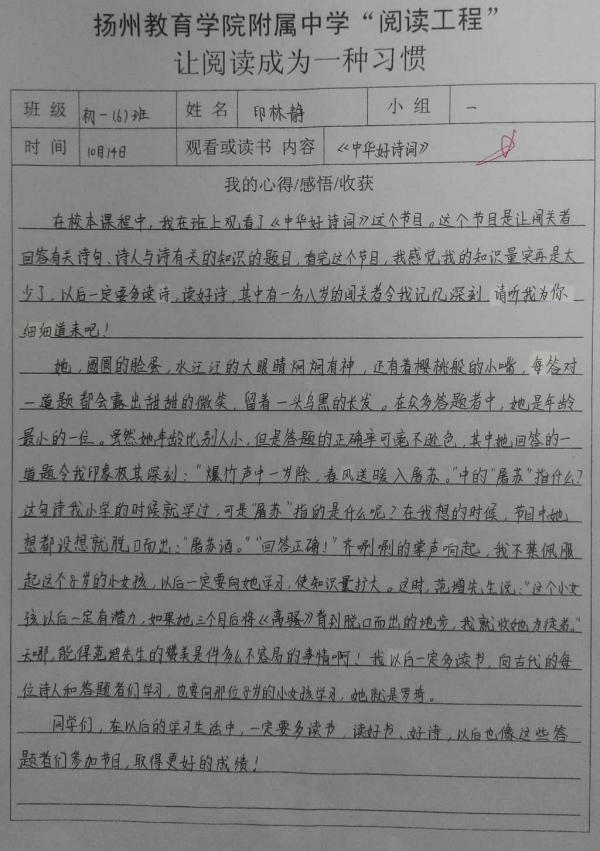 扬州教育学院附属中学“阅读工程”
让阅读成为一种习惯
班级 初一(6)班 姓名 印林静 小组 一
时间 10月14日 观看或读书 内容 《中华好诗词》
我的心得/感悟/收获
在校本课程中,我在班上观看了《中华好诗词》这个节目。这个节目是让闯关者
回答有关诗句、诗人与诗有关的知识的题目,看完这个节目,我感觉我的知识量实再是太
少了,以后一定要多读诗,读好诗,其中有一名八岁的闯关者令我记忆深刻 请听我为你
细细道来吧!
她,圆圆的脸蛋,水汪汪的大眼睛炯炯有神,还有着樱桃般的小嘴,每答对
一道题都会露出甜甜的微笑,留着一头乌黑的长发。在众多答题者中,她是年龄
最小的一位。虽然她年龄比别人小,但是答题的正确率可毫不逊色,其中她回答的一
道题令我印象极其深刻:“爆竹声中一岁除,春风送暖入屠苏。”中的“屠苏”指什么?
这句诗我小学的时候就学过,可是“屠苏”指的是什么呢?在我想的时候,节目中她
想都没想就脱口而出:“屠苏酒。”“回答正确!”齐唰唰的掌声响起,我不禁佩服
起这个8岁的小女孩,以后一定要向她学习,使知识量扩大。这时,范增先生说:“这个小女
孩以后一定有潜力,如果她三个月后将《离骚》背到脱口而出的地步,我就收她为徒者。”
天哪,能得范增先生的赞美是件多么不容易的事情啊!我以后一定多读书,向古代的每
位诗人和答题者们学习,也要向那位8岁的小女孩学习,她就是罗琦。
同学们,在以后的学习生活中,一定要多读书,读好书、好诗,以后也像这些答
题者们参加节目,取得更好的成绩!